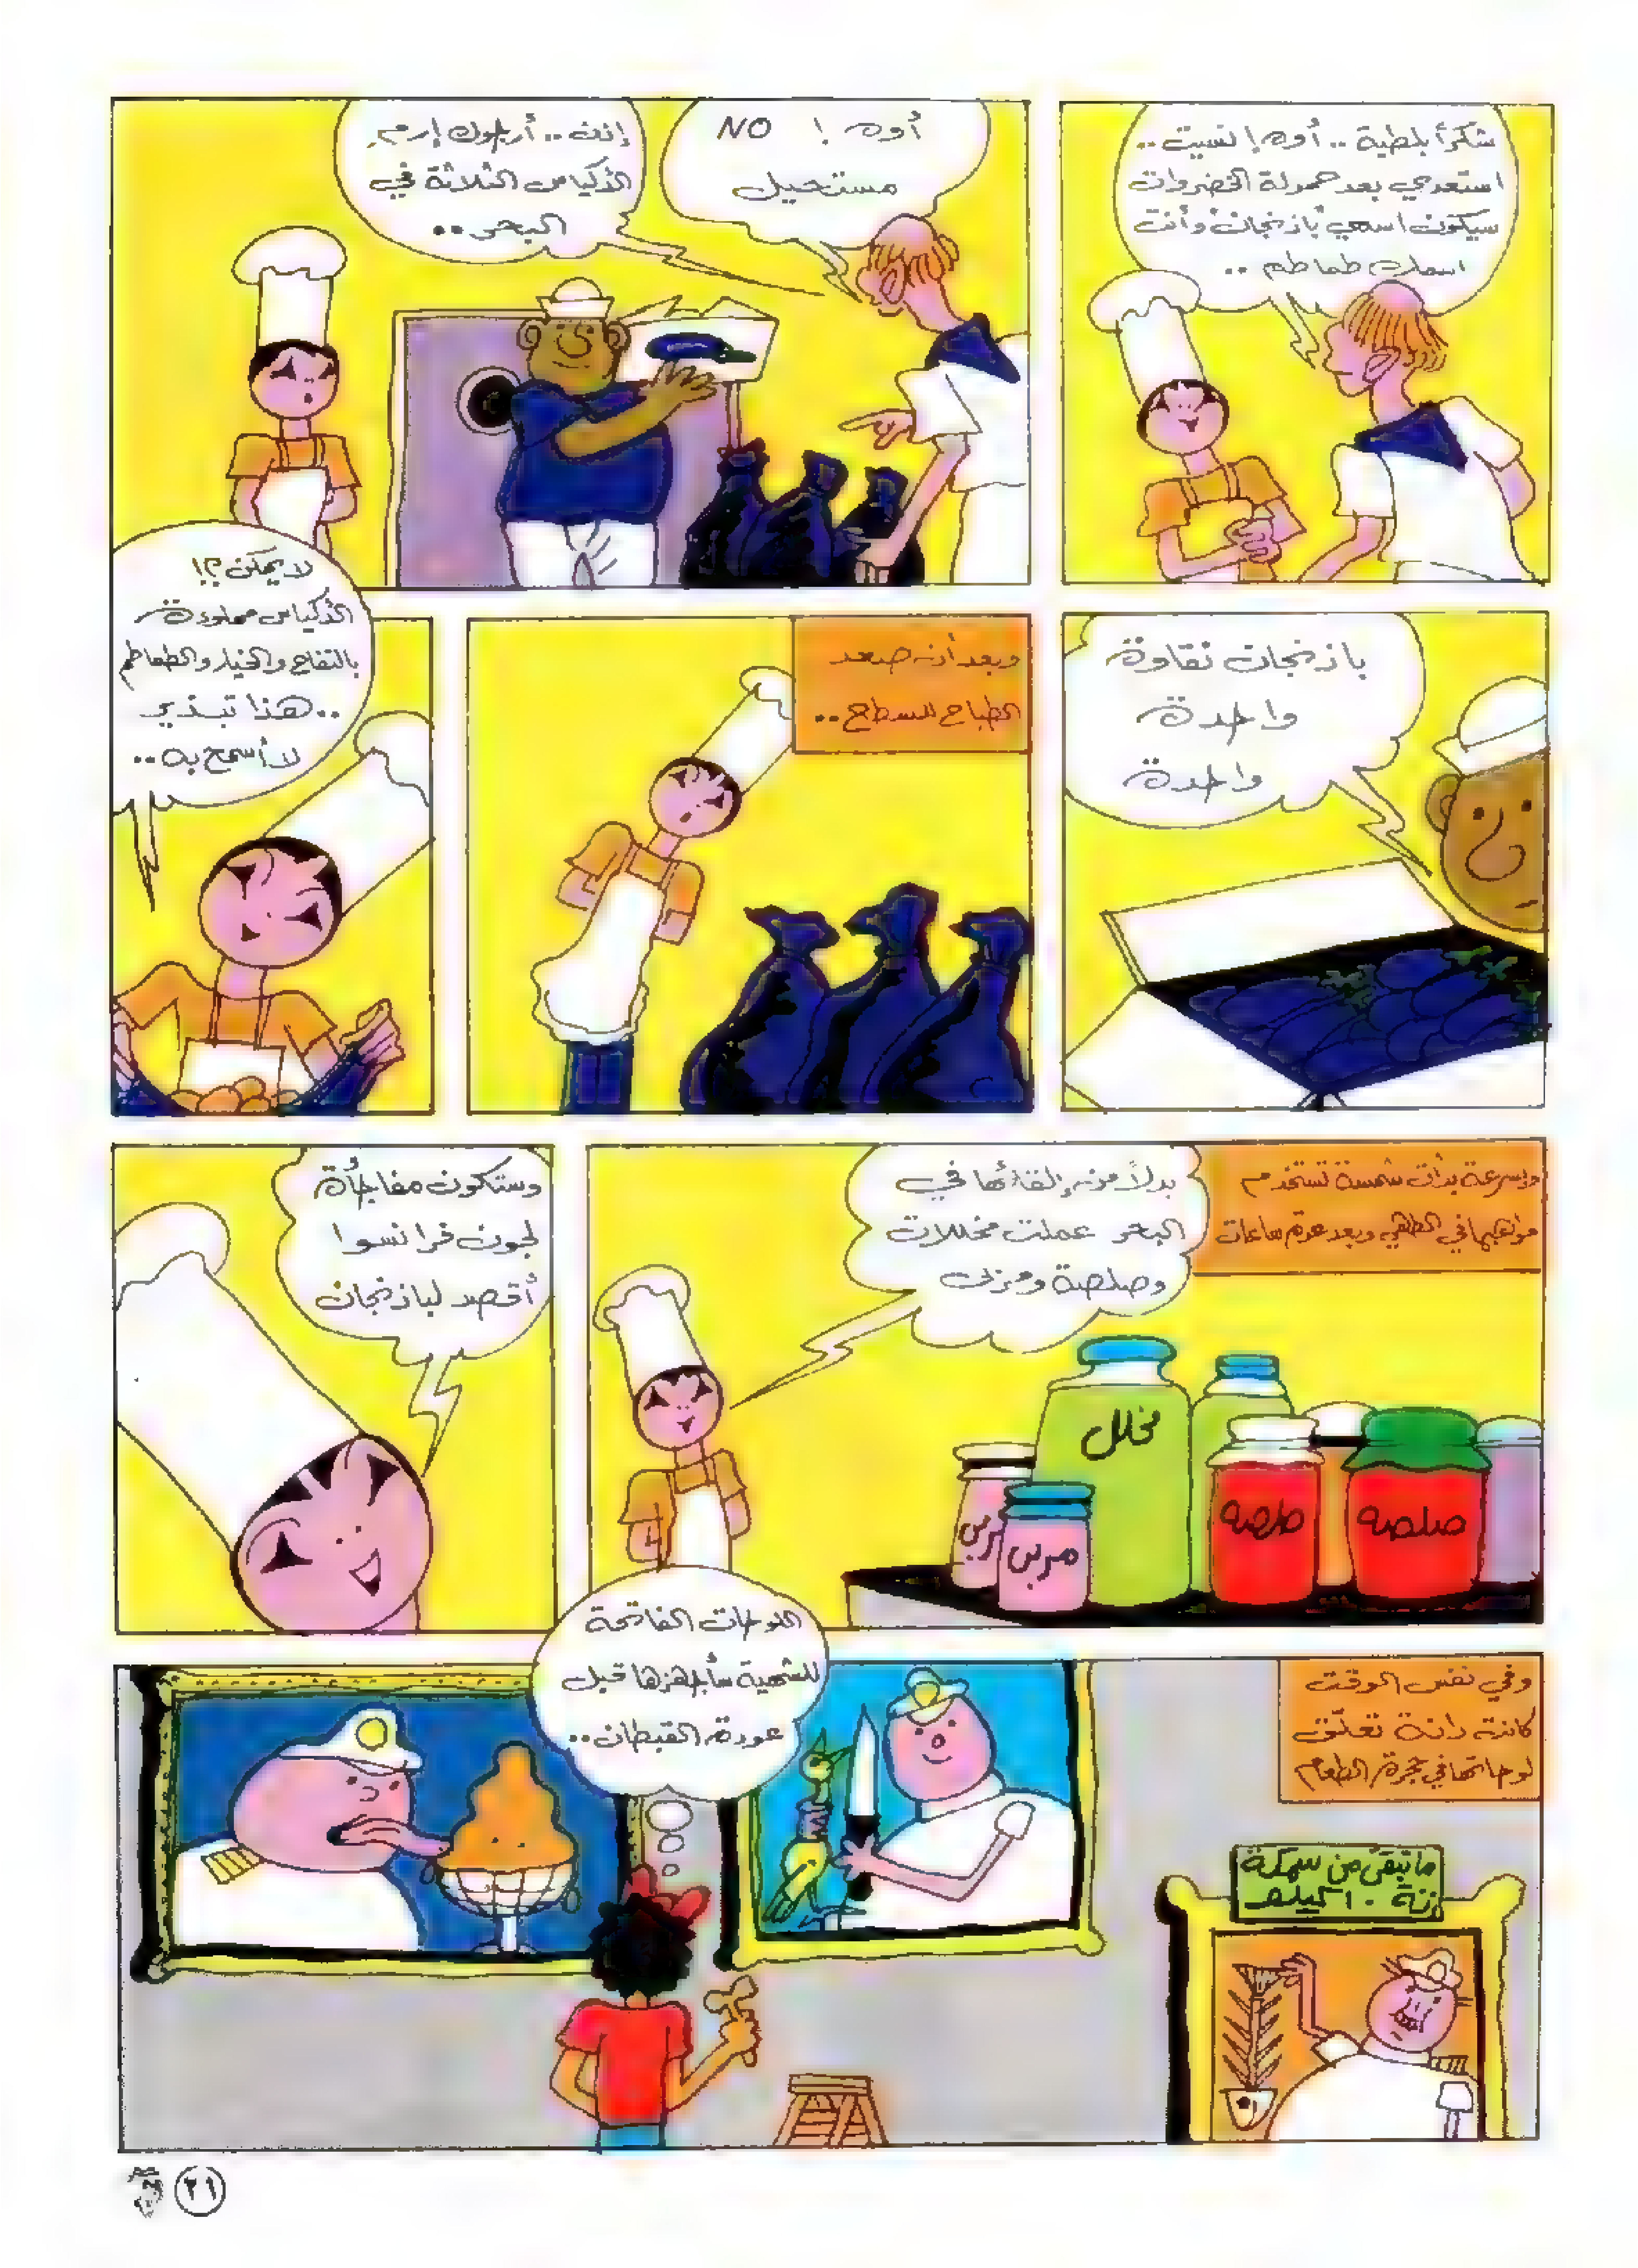 شكراً بلطية .. أوه! نسيت ..
استعدي بعد حمولة الخضروات
سيكون اسمي باذنجان وأنت
اسمك طماطم ..
أوه ! NO
مستحيل
إذن .. أرجوك إرم
الأكياس الثلاثة في
البحر ..
باذنجان نقاوة
واحدة
واحدة
وبعد أن صعد
الطباخ للسطح ..
لا يمكن ؟!
الأكياس مملوءة
بالتفاح والخيار والطماطم
.. هذا تبذير
لا أسمح به ..
وبسرعة بدأت شمسة تستخدم
مواهبها في الطهي وبعد عدة ساعات
بدلاً من إلقائها في
البحر عملت مخللات
وصلصة ومربى
مخلل
مربى
مربى
صلصه
صلصه
وستكون مفاجأة
لجون فرانسوا
أقصد لباذنجان
وفي نفس الوقت
كانت دانة تعلّق
لوحاتها في حجرة الطعام
اللوحات الفاتحة
للشهية سأجهزها قبل
عودة القبطان ..
ما تبقى من سمكة
زنة ١٠ كيلو
٢١